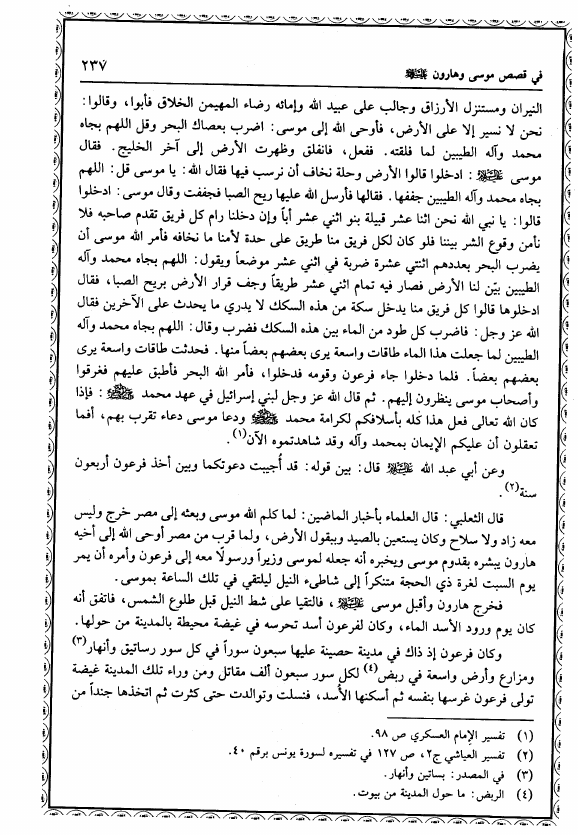 في قصص موسى وهارون ﷺ ٢٣٧
النيران ومستنزل الأرزاق وجالب على عبيد الله وإمائه رضاء المهيمن الخلاق فأبوا، وقالوا:
نحن لا نسير إلا على الأرض، فأوحى الله إلى موسى: اضرب بعصاك البحر وقل اللهم بجاه
محمد وآله الطيبين لما فلقته. ففعل، فانفلق وظهرت الأرض إلى آخر الخليج. فقال
موسى: ادخلوا قالوا الأرض وحلة نخاف أن نرسب فيها فقال الله: يا موسى قل: اللهم
بجاه محمد وآله الطيبين جففها. فقالها فأرسل الله عليها ريح الصبا فجففت وقال موسى: ادخلوا
قالوا: يا نبي الله نحن اثنا عشر قبيلة بنو اثني عشر أباً وإن دخلنا رام كل فريق تقدم صاحبه فلا
نأمن وقوع الشر بيننا فلو كان لكل فريق منا طريق على حدة لأمنا ما نخافه فأمر الله موسى أن
يضرب البحر بعددهم اثنتي عشرة ضربة في اثني عشر موضعاً ويقول: اللهم بجاه محمد وآله
الطيبين بيّن لنا الأرض فصار فيه تمام اثني عشر طريقاً وجف قرار الأرض بريح الصبا، فقال
ادخلوها قالوا كل فريق منا يدخل سكة من هذه السكك لا يدري ما يحدث على الآخرين فقال
الله عز وجل: فاضرب كل طود من الماء بين هذه السكك فضرب وقال: اللهم بجاه محمد وآله
الطيبين لما جعلت هذا الماء طاقات واسعة يرى بعضهم بعضاً منها. فحدثت طاقات واسعة يرى
بعضهم بعضاً. فلما دخلوا جاء فرعون وقومه فدخلوا، فأمر الله البحر فأطبق عليهم فغرقوا
وأصحاب موسى ينظرون إليهم. ثم قال الله عز وجل لبني إسرائيل في عهد محمد ﷺ: فإذا
كان الله تعالى فعل هذا كله بأسلافكم لكرامة محمد ﷺ ودعا موسى دعاء تقرب بهم، أفما
تعقلون أن عليكم الإيمان بمحمد وآله وقد شاهدتموه الآن(١).
وعن أبي عبد الله قال: بين قوله: قد أُجيبت دعوتكما وبين أخذ فرعون أربعون
سنة(٢).
قال الثعلبي: قال العلماء بأخبار الماضين: لما كلم الله موسى وبعثه إلى مصر خرج وليس
معه زاد ولا سلاح وكان يستعين بالصيد وببقول الأرض، ولما قرب من مصر أوحى الله إلى أخيه
هارون يبشره بقدوم موسى ويخبره أنه جعله لموسى وزيراً ورسولًا معه إلى فرعون وأمره أن يمر
يوم السبت لغرة ذي الحجة متنكراً إلى شاطىء النيل ليلتقي في تلك الساعة بموسى.
فخرج هارون وأقبل موسى، فالتقيا على شط النيل قبل طلوع الشمس، فاتفق أنه
كان يوم ورود الأسد الماء، وكان لفرعون أسد تحرسه في غيضة محيطة بالمدينة من حولها.
وكان فرعون إذ ذاك في مدينة حصينة عليها سبعون سوراً في كل سور رساتيق وأنهار(٣)
ومزارع وأرض واسعة في ربض(٤) لكل سور سبعون ألف مقاتل ومن وراء تلك المدينة غيضة
تولى فرعون غرسها بنفسه ثم أسكنها الأُسد، فنسلت وتوالدت حتى كثرت ثم اتخذها جنداً من
(١) تفسير الإمام العسكري ص ٩٨.
(٢) تفسير العياشي ج٢، ص ١٢٧ في تفسيره لسورة يونس برقم ٤٠.
(٣) في المصدر: بساتين وأنهار.
(٤) الربض: ما حول المدينة من بيوت.